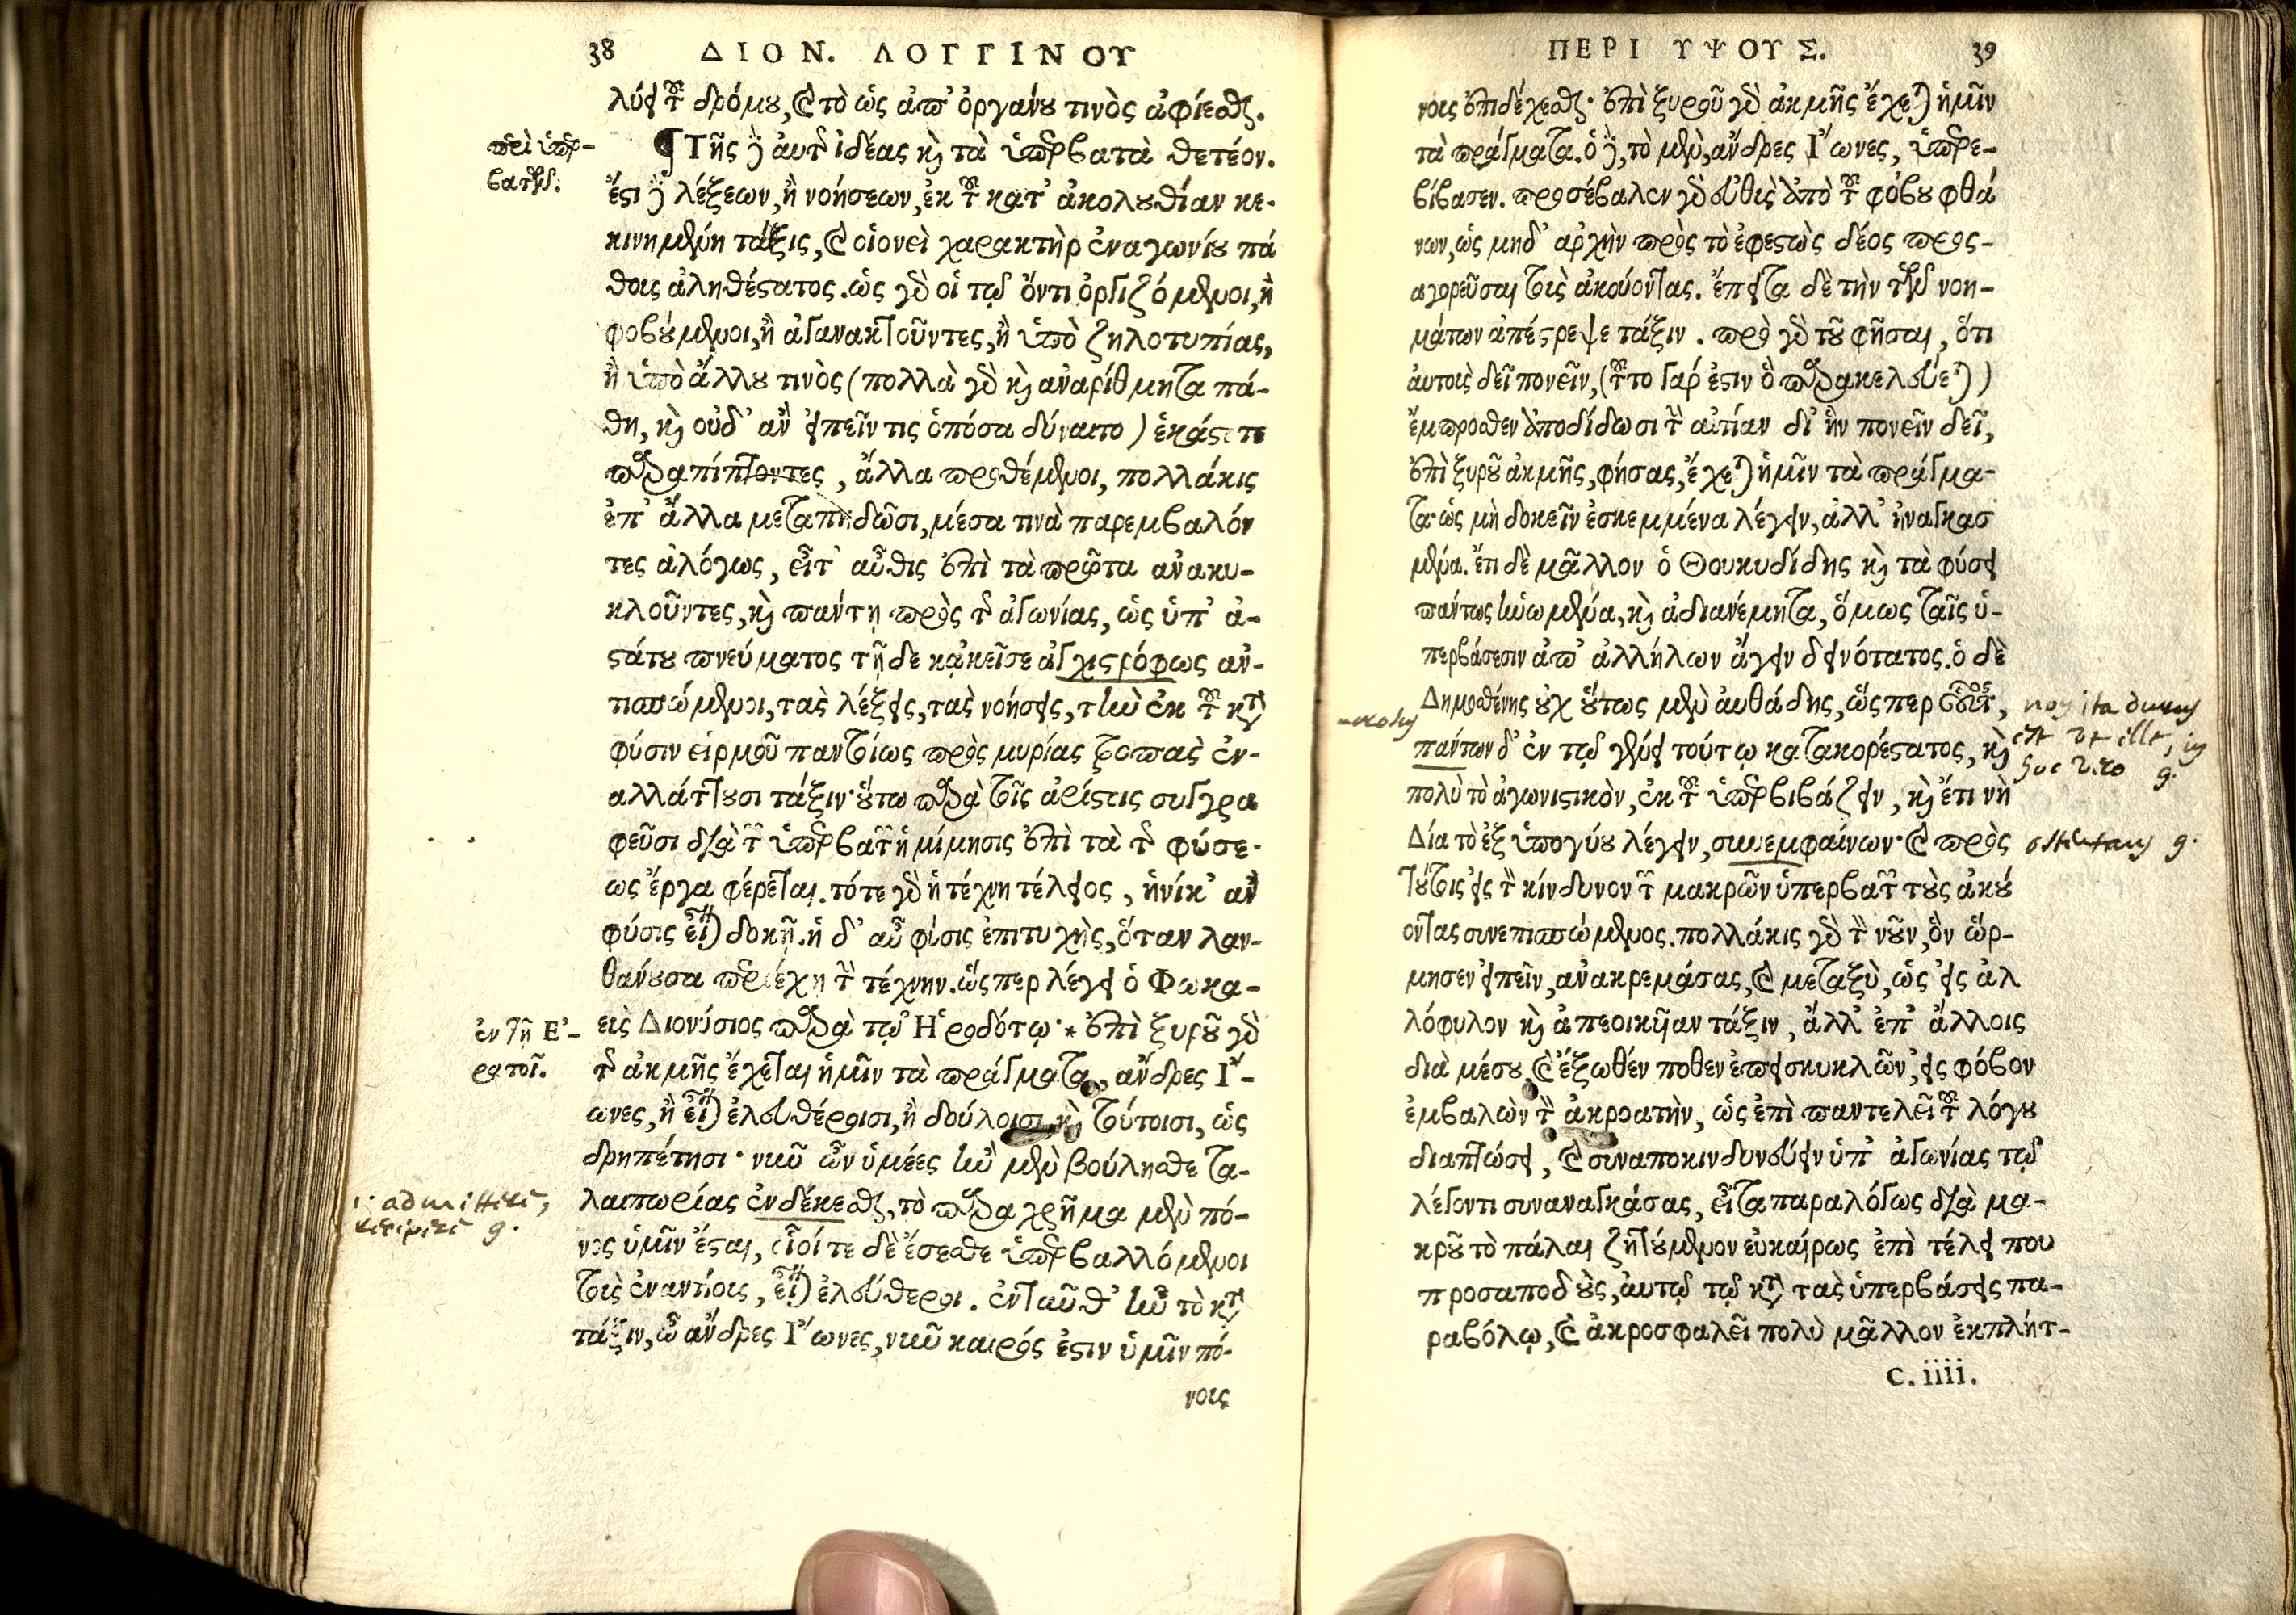 38 ΔΙΟΝ. ΛΟΓΓΙΝΟΥ
λύει τοῦ δρόμου, καὶ τὸ ὡς ἀπ' ὀργάνου τινὸς ἀφίεσθαι.
περὶ ὑπερ-
βατῶν.
¶ Τῆς δὲ αὐτῆς ἰδέας καὶ τὰ ὑπερβατὰ θετέον.
ἔστι δὲ λέξεων, ἢ νοήσεων, ἐκ τοῦ κατ' ἀκολουθίαν κε-
κινημένη τάξις, καὶ οἱονεὶ χαρακτὴρ ἐναγωνίου πά
θους ἀληθέστατος. ὡς γὰρ οἱ τῷ ὄντι ὀργιζόμενοι, ἢ
φοβούμενοι, ἢ ἀγανακτοῦντες, ἢ ὑπὸ ζηλοτυπίας,
ἢ ὑπὸ ἄλλου τινὸς (πολλὰ γὰρ καὶ ἀναρίθμητα πά-
θη, καὶ οὐδ' ἂν εἰπεῖν τις ὁπόσα δύναιτο) ἑκάστοτε
παραπίπτοντες, ἄλλα προθέμενοι, πολλάκις
ἐπ' ἄλλα μεταπηδῶσι, μέσα τινὰ παρεμβαλόν
τες ἀλόγως, εἶτ' αὖθις ἐπὶ τὰ πρῶτα ἀνακυ-
κλοῦντες, καὶ πάντῃ πρὸς τῆς ἀγωνίας, ὡς ὑπ' ἀ-
στάτου πνεύματος τῇδε κἀκεῖσε ἀγχιστρόφως ἀν-
τισπώμενοι, τὰς λέξεις, τὰς νοήσεις, τὴν ἐκ τοῦ κατὰ
φύσιν εἱρμοῦ παντοίως πρὸς μυρίας τροπὰς ἐν-
αλλάττουσι τάξιν· οὕτω παρὰ τοῖς ἀρίστοις συγγρα
φεῦσι διὰ τῶν ὑπερβατῶν ἡ μίμησις ἐπὶ τὰ τῆς φύσε-
ως ἔργα φέρεται. τότε γὰρ ἡ τέχνη τέλειος, ἡνίκ' ἂν
φύσις εἶναι δοκῇ. ἡ δ' αὖ φύσις ἐπιτυχὴς, ὅταν λαν-
θάνουσα περιέχῃ τὴν τέχνην. ὥσπερ λέγει ὁ Φωκα-
ἐν τῇ Ἐ-
ρατοῖ.
εὶς Διονύσιος παρὰ τῷ Ἡροδότῳ· * ἐπὶ ξυροῦ γὰρ
τῆς ἀκμῆς ἔχεται ἡμῖν τὰ πράγματα, ἄνδρες Ἴ-
ωνες, ἢ εἶναι ἐλευθέροισι, ἢ δούλοισι, καὶ τούτοισι, ὡς
δρηπέτησι· νῦν ὦν ὑμέες ἢν μὲν βούλησθε τα-
λαιπωρίας ἐνδέκεσθαι, τὸ παραχρῆμα μὲν πό-
νος ὑμῖν ἔσται, οἷοί τε δὲ ἔσεσθε ὑπερβαλλόμενοι
τοὺς ἐναντίους, εἶναι ἐλεύθεροι. ἐνταῦθ' ἦν τὸ κατὰ
τάξιν, ὦ ἄνδρες Ἴωνες, νῦν καιρός ἐστιν ὑμῖν πό-
νους
ΠΕΡΙ ΥΨΟΥΣ. 39
νους ἐπιδέχεσθαι· ἐπὶ ξυροῦ γὰρ ἀκμῆς ἔχεται ἡμῖν
τὰ πράγματα. ὁ δὲ, τὸ μὲν, ἄνδρες Ἴωνες, ὑπερε-
βίβασεν. προσέβαλεν γὰρ εὐθὺς ἀπὸ τοῦ φόβου φθά
νων, ὡς μηδ' ἀρχὴν πρὸς τὸ ἐφεστὼς δέος προς-
αγορεῦσαι τοὺς ἀκούοντας. ἔπειτα δὲ τὴν τῶν νοη-
μάτων ἀπέστρεψε τάξιν. πρὸ γὰρ τοῦ φῆσαι, ὅτι
αὐτοὺς δεῖ πονεῖν, (τοῦτο γάρ ἐστιν ὃ παρακελεύεται)
ἔμπροσθεν ἀποδίδωσι τὴν αἰτίαν δι' ἣν πονεῖν δεῖ,
ἐπὶ ξυροῦ ἀκμῆς, φήσας, ἔχεται ἡμῖν τὰ πράγμα-
τα· ὡς μὴ δοκεῖν ἐσκεμμένα λέγειν, ἀλλ' ἠναγκασ
μένα. ἔτι δὲ μᾶλλον ὁ Θουκυδίδης καὶ τὰ φύσει
πάντως ἡνωμένα, καὶ ἀδιανέμητα, ὅμως ταῖς ὑ-
περβάσεσιν ἀπ' ἀλλήλων ἄγειν δεινότατος. ὁ δὲ
Δημοσθένης οὐχ οὕτως μὲν αὐθάδης, ὥσπερ οὗτος,
πάντων δ' ἐν τῷ γένει τούτῳ κατακορέστατος, καὶ
non ita durus
est ut ille, in
hoc vero g.
πολὺ τὸ ἀγωνιστικὸν, ἐκ τοῦ ὑπερβιβάζειν, καὶ ἔτι νὴ
Δία τὸ ἐξ ὑπογύου λέγειν, συνεμφαίνων· καὶ πρὸς
τούτοις εἰς τὸν κίνδυνον τῶν μακρῶν ὑπερβατῶν τοὺς ἀκού
οντας συνεπισπώμενος. πολλάκις γὰρ τὸν νοῦν, ὃν ὥρ-
μησεν εἰπεῖν, ἀνακρεμάσας, καὶ μεταξὺ, ὡς εἰς ἀλ
λόφυλον καὶ ἀπεοικυῖαν τάξιν, ἄλλ' ἐπ' ἄλλοις
διὰ μέσου, καὶ ἔξωθέν ποθεν ἐπεισκυκλῶν, εἰς φόβον
ἐμβαλὼν τὸν ἀκροατὴν, ὡς ἐπὶ παντελεῖ τοῦ λόγου
διαπτώσει, καὶ συναποκινδυνεύειν ὑπ' ἀγωνίας τῷ
λέγοντι συναναγκάσας, εἶτα παραλόγως διὰ μα-
κροῦ τὸ πάλαι ζητούμενον εὐκαίρως ἐπὶ τέλει που
προσαποδοὺς, αὐτῷ τῷ κατὰ τὰς ὑπερβάσεις πα-
ραβόλῳ, καὶ ἀκροσφαλεῖ πολὺ μᾶλλον ἐκπλήτ-
C. iiii.